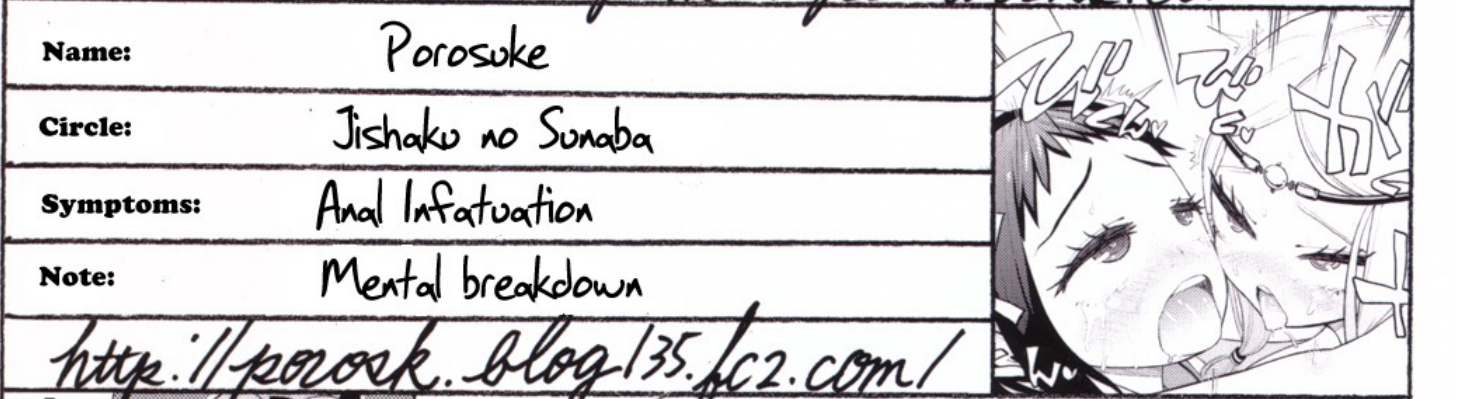 Name: Porosuke
Circle: Jishaku no Sunaba
Symptoms: Anal Infatuation
Note: Mental breakdown
http://porosk.blog135.fc2.com/